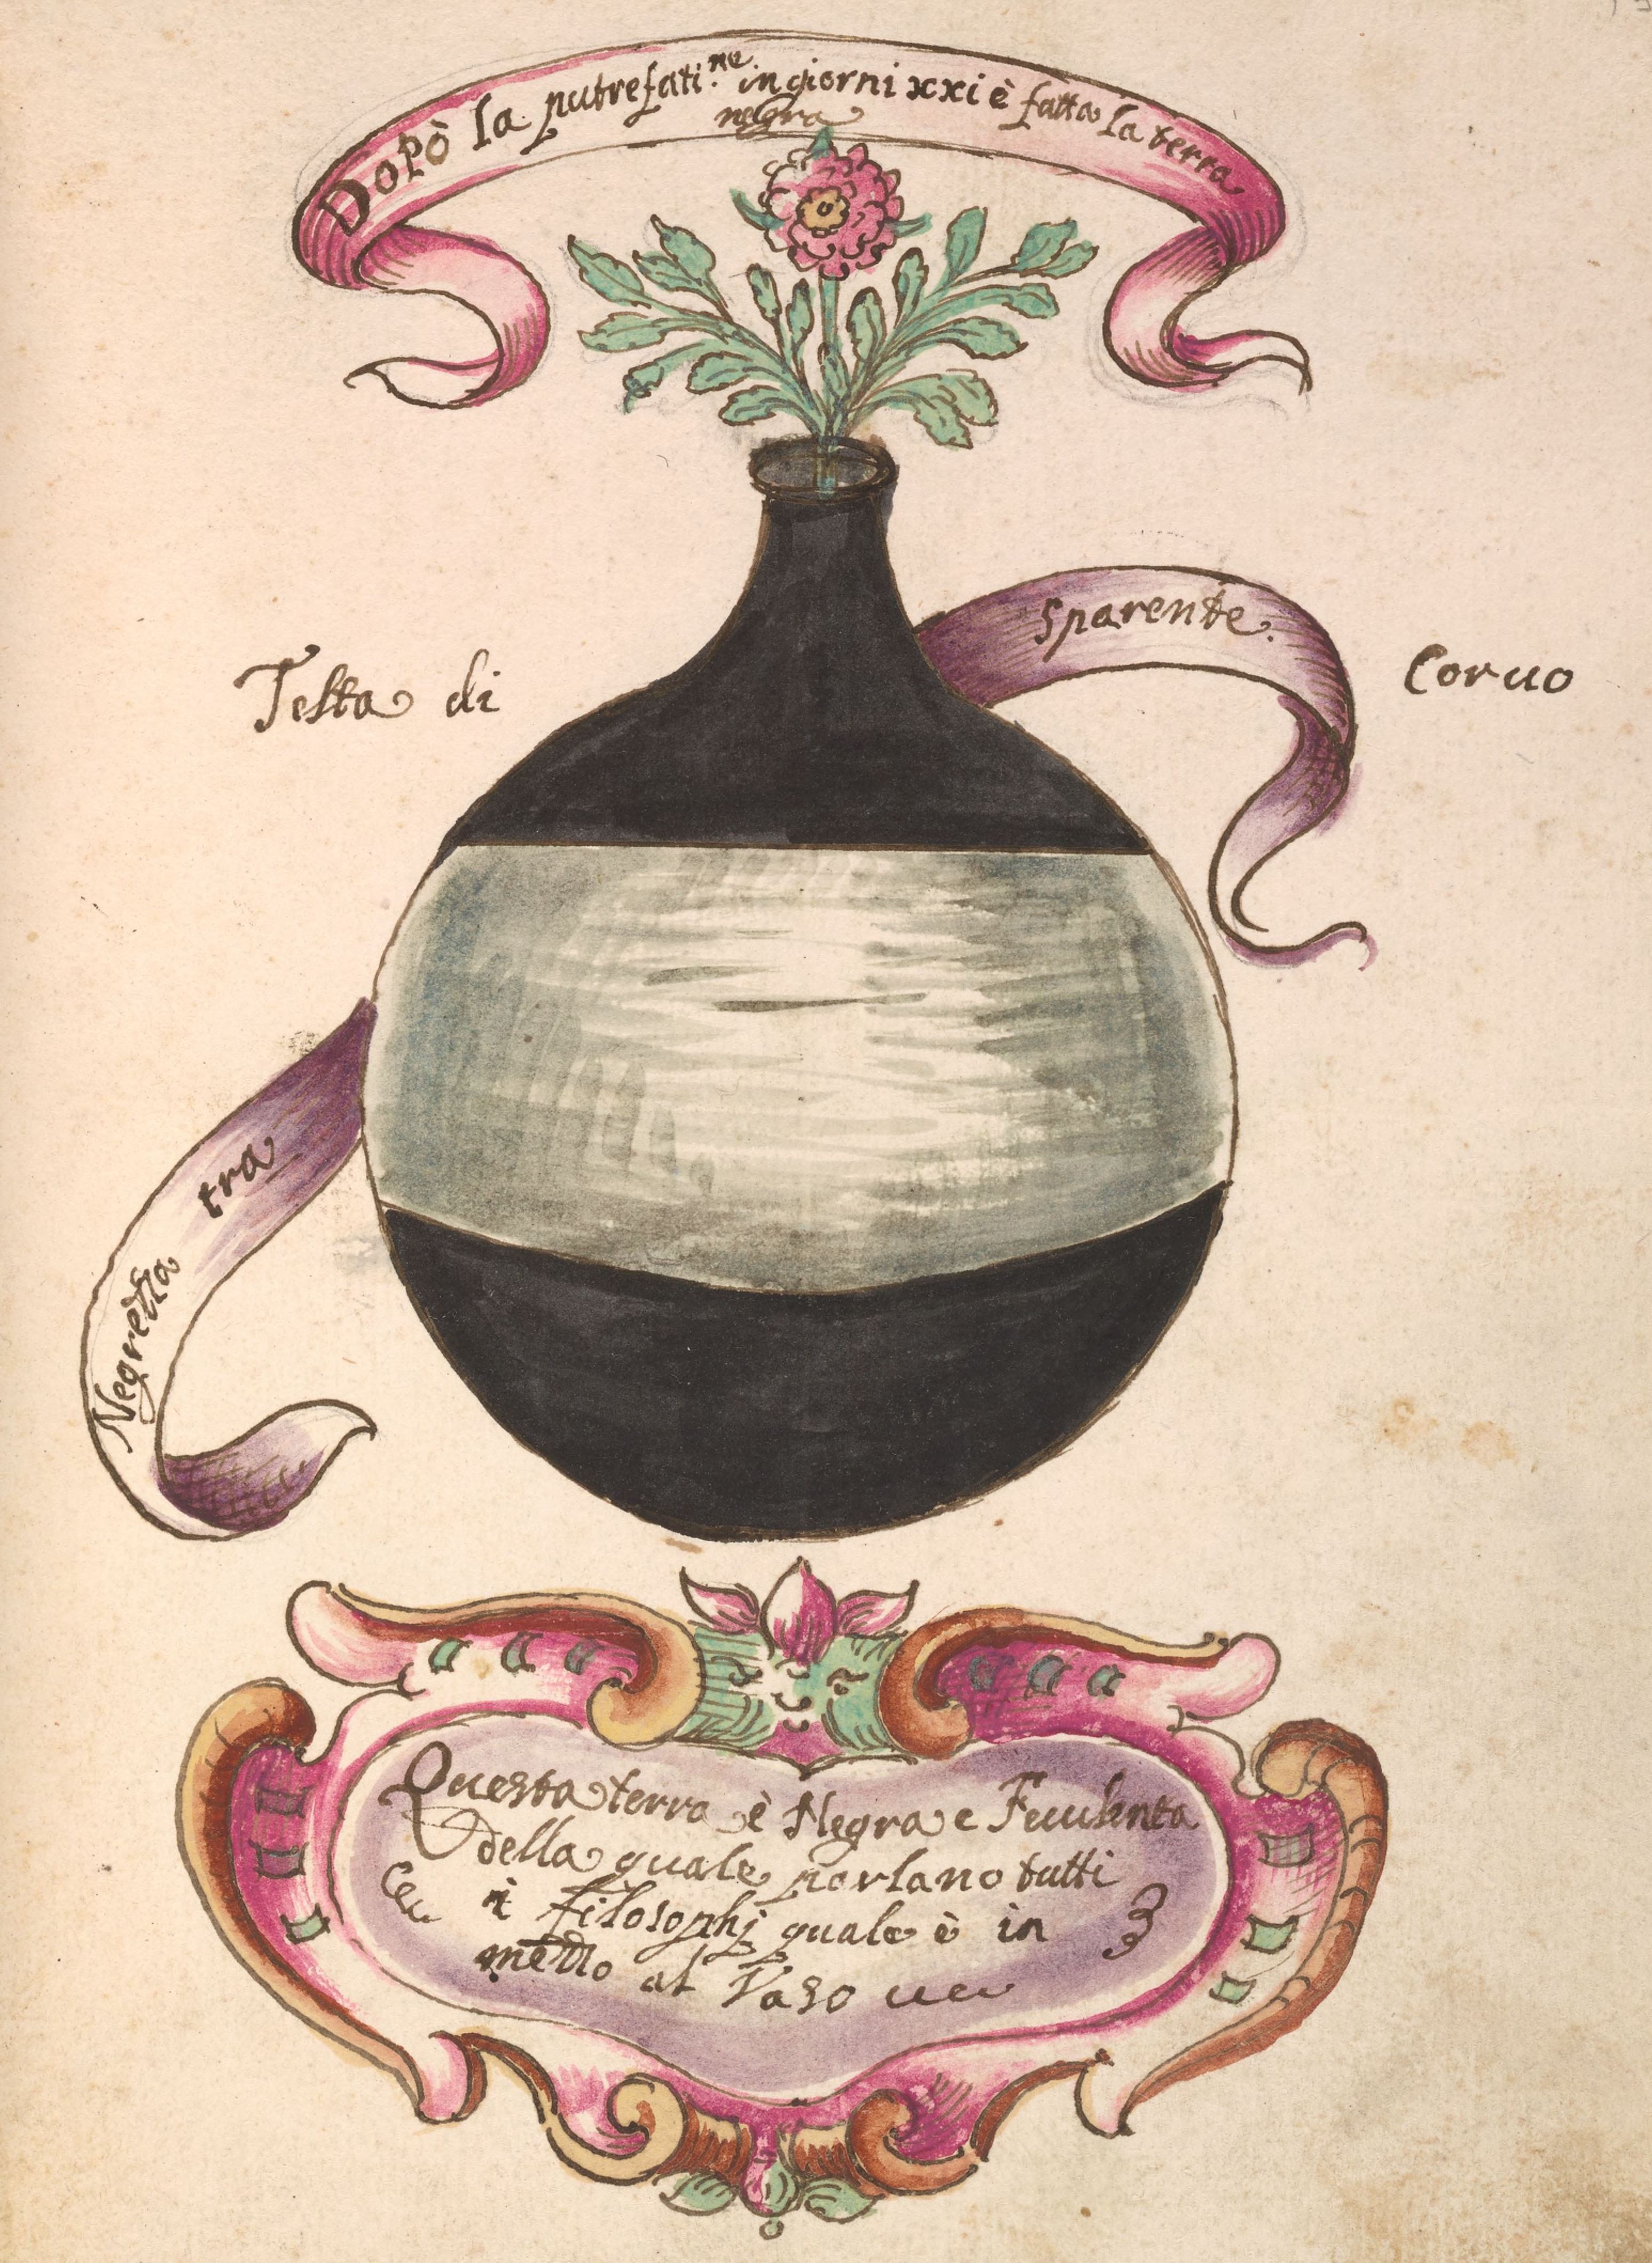 Dopò la putrefati.ne in giorni xxi è fatta la terra
negra
Testa di
Sparente.
Coruo
tra
Negretta
Questa terra è Negra e Feculenta
della quale parlano tutti
i filosophj quale è in
mezzo al Vaso